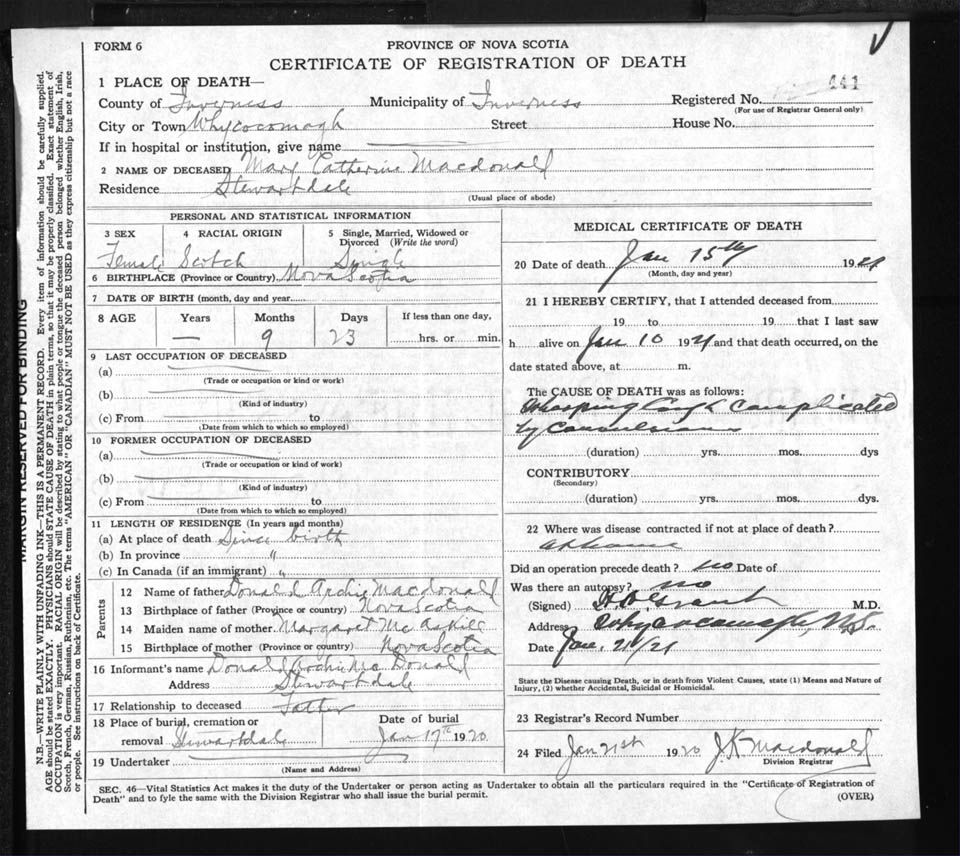 FORM 6
PROVINCE OF NOVA SCOTIA
CERTIFICATE OF REGISTRATION OF DEATH
1 PLACE OF DEATH—
County of Inverness Municipality of Inverness Registered No. 441
(For use of Registrar General only)
City or Town Whycocomagh Street House No.
If in hospital or institution, give name
2 NAME OF DECEASED Mary Catherine Macdonald
Residence Stewartdale
(Usual place of abode)
PERSONAL AND STATISTICAL INFORMATION
3 SEX 4 RACIAL ORIGIN 5 Single, Married, Widowed or
Divorced (Write the word)
Female Scotch Single
6 BIRTHPLACE (Province or Country) Nova Scotia
7 DATE OF BIRTH (month, day and year)
8 AGE Years Months Days If less than one day,
— 9 23 hrs. or min.
9 LAST OCCUPATION OF DECEASED
(a)
(Trade or occupation or kind or work)
(b)
(Kind of industry)
(c) From to
(Date from which to which so employed)
10 FORMER OCCUPATION OF DECEASED
(a)
(Trade or occupation or kind of work)
(b)
(Kind of industry)
(c) From to
(Date from which to which so employed)
11 LENGTH OF RESIDENCE (In years and months)
(a) At place of death Since birth
(b) In province "
(c) In Canada (if an immigrant) "
Parents
12 Name of father Donald Archie Macdonald
13 Birthplace of father (Province or country) Nova Scotia
14 Maiden name of mother Margaret McAskill
15 Birthplace of mother (Province or country) Nova Scotia
16 Informant's name Donald Archie McDonald
Address Stewartdale
17 Relationship to deceased Father
18 Place of burial, cremation or Date of burial
removal Stewartdale Jan 17th 1920
19 Undertaker
(Name and Address)
MEDICAL CERTIFICATE OF DEATH
20 Date of death Jan 15th 1921
(Month, day and year)
21 I HEREBY CERTIFY, that I attended deceased from
19 to 19 that I last saw
h alive on Jan 10 1921 and that death occurred, on the
date stated above, at m.
The CAUSE OF DEATH was as follows:
Whooping Cough complicated
by Convulsions
(duration) yrs. mos. dys
CONTRIBUTORY
(Secondary)
(duration) yrs. mos. dys.
22 Where was disease contracted if not at place of death?
at home
Did an operation precede death? no Date of
Was there an autopsy? no
(Signed) Grant M.D.
Address Whycocomagh, N.S.
Date Jan. 21/21
State the Disease causing Death, or in death from Violent Causes, state (1) Means and Nature of
Injury, (2) whether Accidental, Suicidal or Homicidal.
23 Registrar's Record Number
24 Filed Jan 21st 1920 J. K. Macdonald
Division Registrar
SEC. 46—Vital Statistics Act makes it the duty of the Undertaker or person acting as Undertaker to obtain all the particulars required in the "Certificate of Registration of
Death" and to fyle the same with the Division Registrar who shall issue the burial permit.
(OVER)
MARGIN RESERVED FOR BINDING
N.B.—WRITE PLAINLY WITH UNFADING INK—THIS IS A PERMANENT RECORD. Every item of information should be carefully supplied.
AGE should be stated EXACTLY. PHYSICIANS should STATE CAUSE OF DEATH in plain terms, so that it may be properly classified. Exact statement of
OCCUPATION is very important. RACIAL ORIGIN will be described by stating to what people or tongue the deceased person belonged, whether English, Irish,
Scotch, French, German, Russian, Ruthenian, etc. The terms "AMERICAN" OR "CANADIAN" MUST NOT BE USED as they express citizenship but not a race
or people. See instructions on back of Certificate.